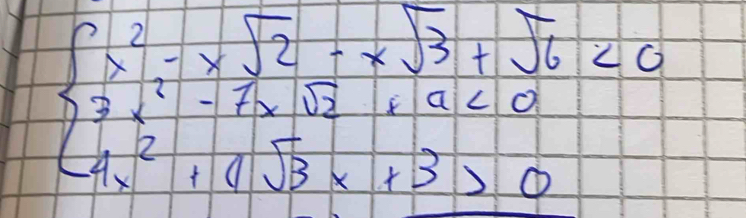 x² - x√2 - x√3 + √6 < 0
3x² - 7x√2 + a < 0
4x² + 4√3x + 3 > 0